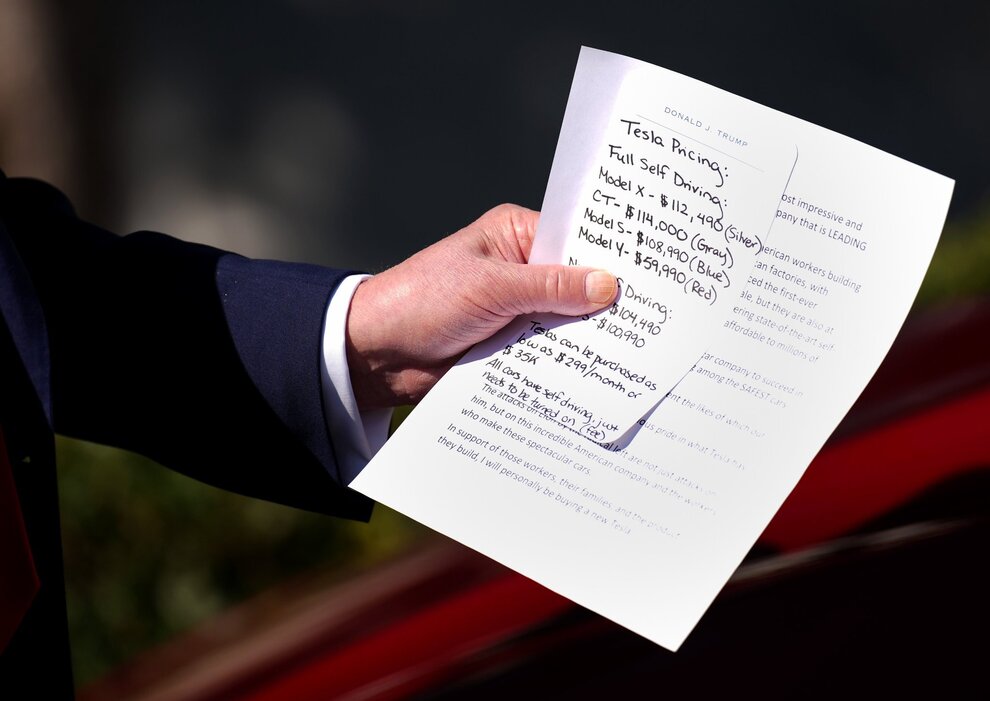 DONALD J. TRUMP
Tesla Pricing:
Full Self Driving:
Model X - $112,490 (Silver)
CT- $114,000 (Gray)
Model S- $108,990 (Blue)
Model Y- $59,990 (Red)
Driving:
$104,490
-$100,990
Teslas can be purchased as
low as $299/month or
$35K
All cars have self driving, just
needs to be turned on (fee)
ost impressive and
pany that is LEADING
erican workers building
can factories, with
ced the first-ever
ale, but they are also at
ering state-of-the-art self
affordable to millions of
ar company to succeed in
t among the SAFEST cars
ent the likes of which our
ous pride in what Tesla has
The attacks on are not just attacks on
him, but on this incredible American company and the workers
who make these spectacular cars.
In support of those workers, their families, and the product
they build, I will personally be buying a new Tesla